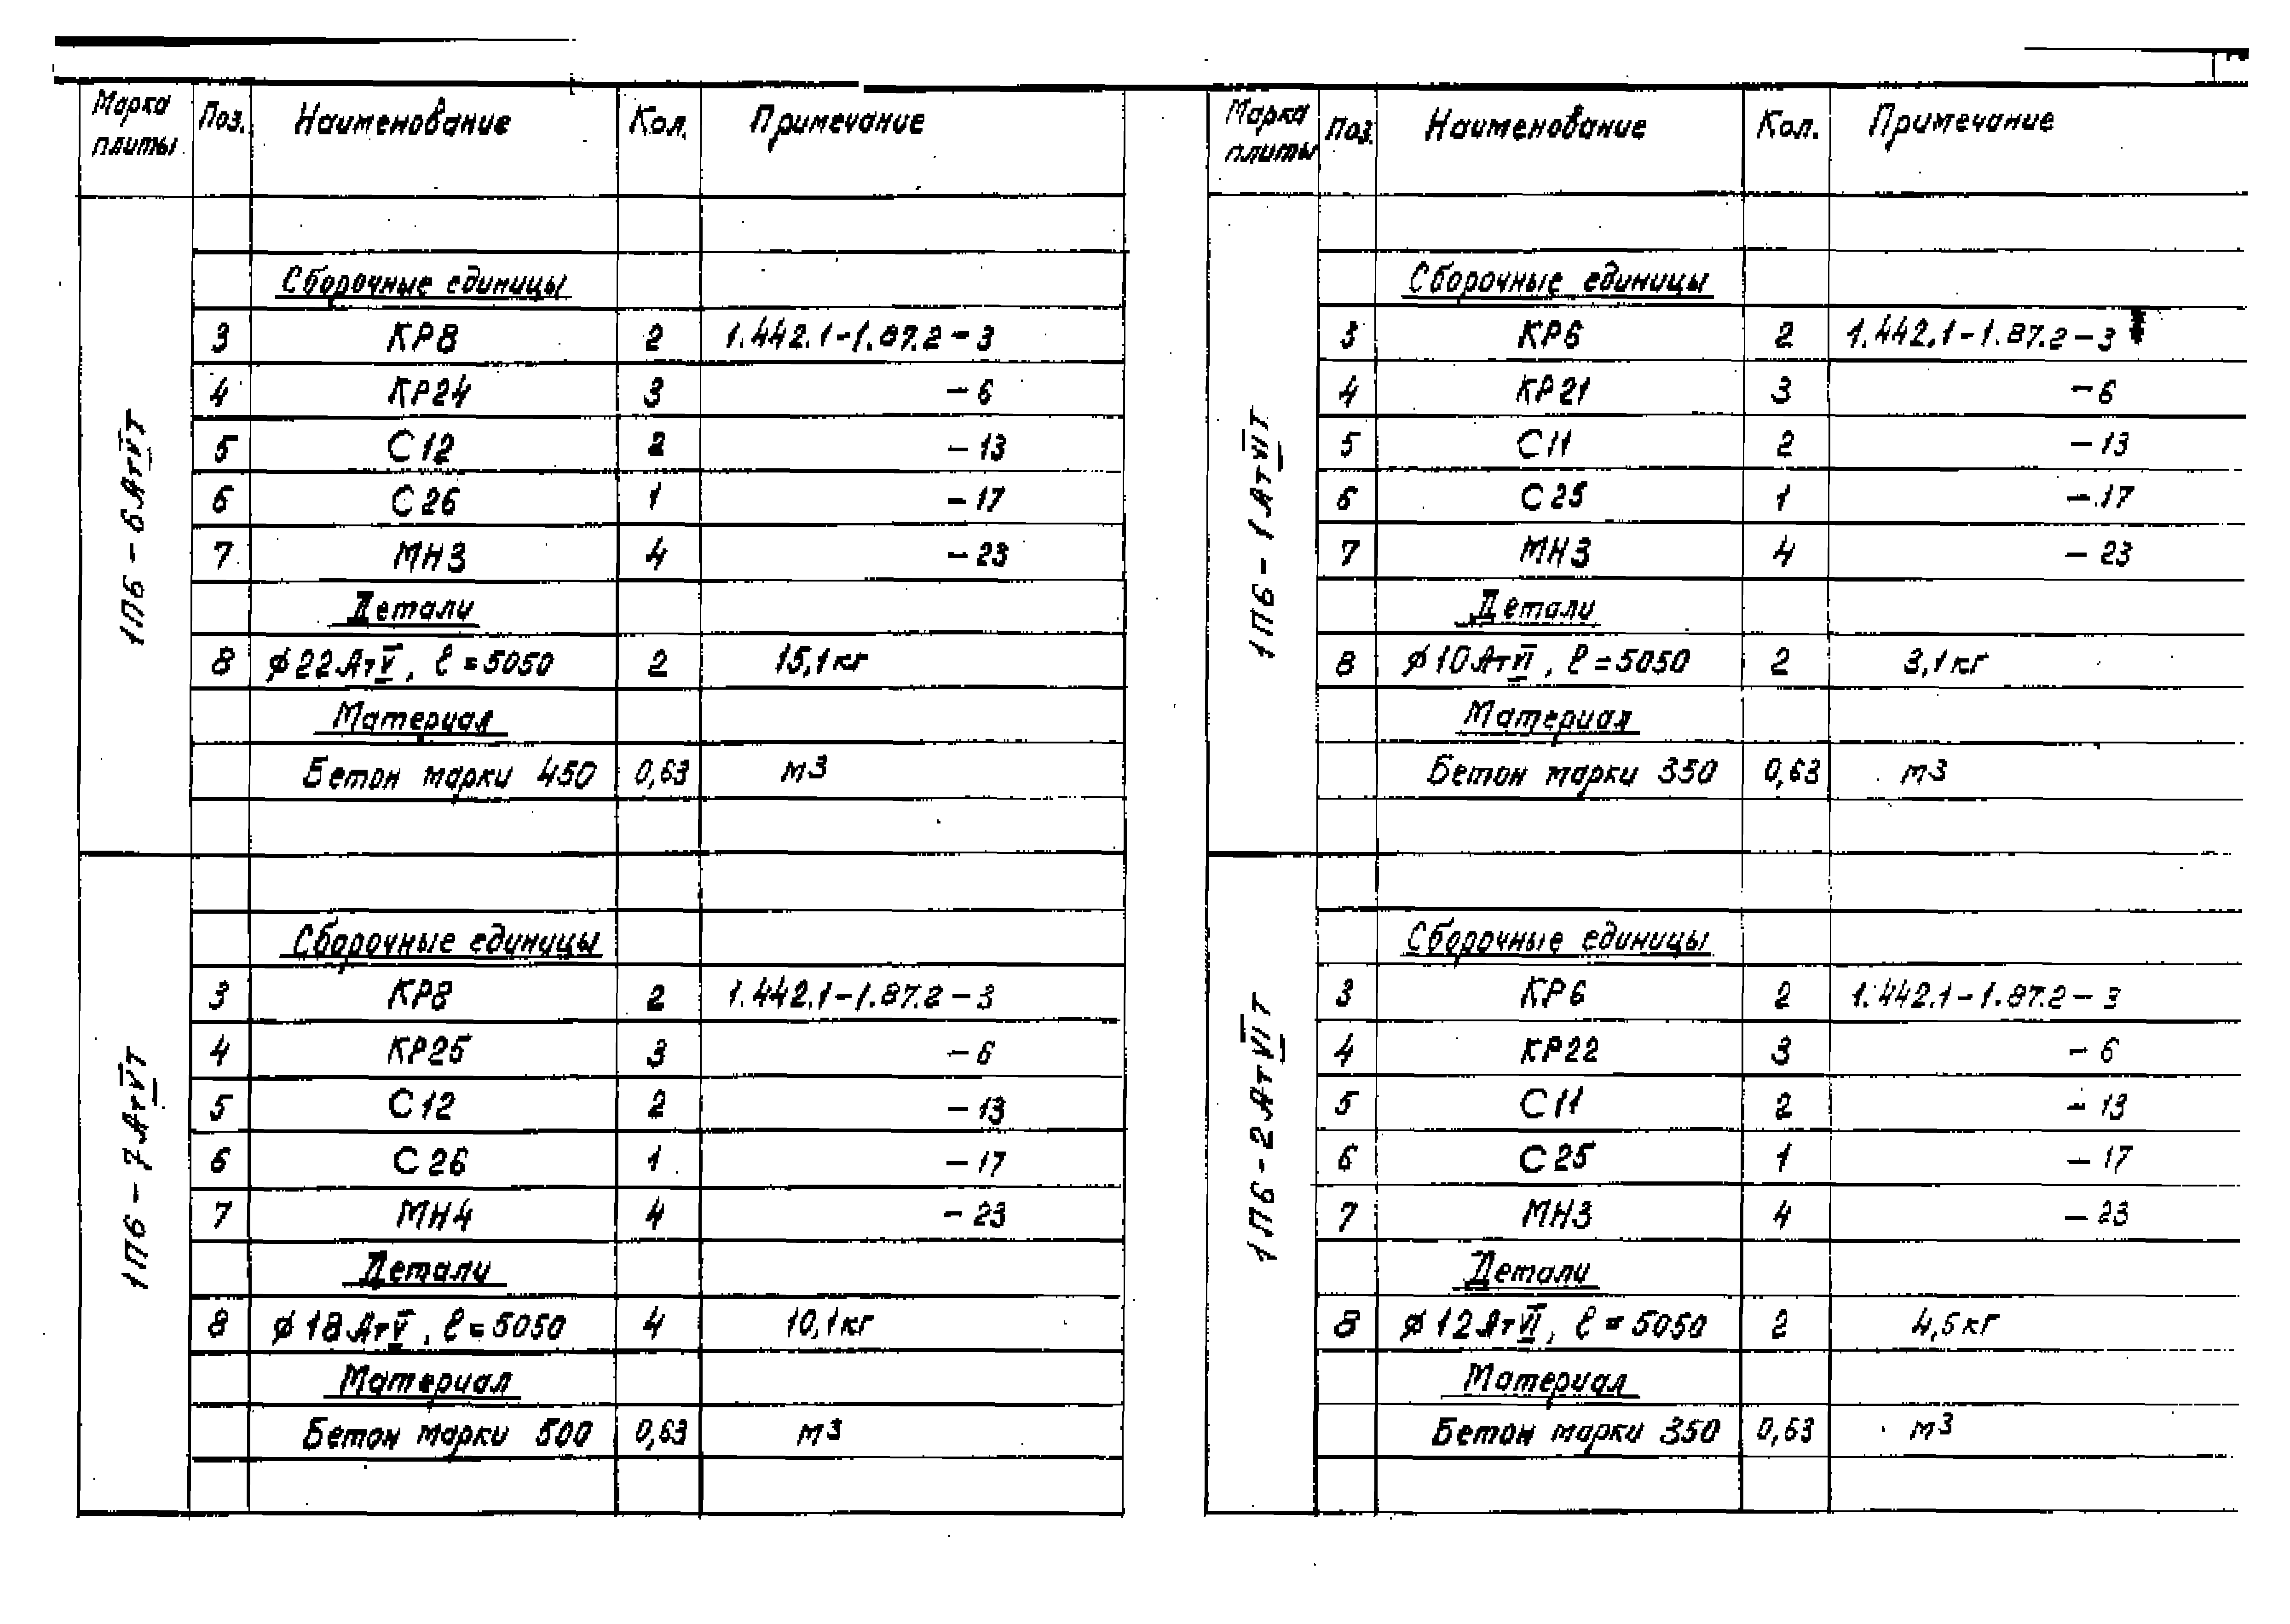 Марка плиты Поз. Наименование Кол. Примечание
1П6-6АтVТ
Сборочные единицы
3 КР8 2 1.442.1-1.87.2-3
4 КР24 3 -6
5 С12 2 -13
6 С26 1 -17
7 МН3 4 -23
Детали
8 ϕ22АтV, ℓ=5050 2 15,1кг
Материал
Бетон марки 450 0,63 м3
1П6-7АтVТ
Сборочные единицы
3 КР8 2 1.442.1-1.87.2-3
4 КР25 3 -6
5 С12 2 -13
6 С26 1 -17
7 МН4 4 -23
Детали
8 ϕ18АтV, ℓ=5050 4 10,1кг
Материал
Бетон марки 500 0,63 м3
Марка плиты Поз. Наименование Кол. Примечание
1П6-1АтVIТ
Сборочные единицы
3 КР6 2 1.442.1-1.87.2-3
4 КР21 3 -6
5 С11 2 -13
6 С25 1 -17
7 МН3 4 -23
Детали
8 ϕ10АтVI, ℓ=5050 2 3,1кг
Материал
Бетон марки 350 0,63 м3
1П6-2АтVIТ
Сборочные единицы
3 КР6 2 1.442.1-1.87.2-3
4 КР22 3 -6
5 С11 2 -13
6 С25 1 -17
7 МН3 4 -23
Детали
8 ϕ12АтVI, ℓ=5050 2 4,5кг
Материал
Бетон марки 350 0,63 м3